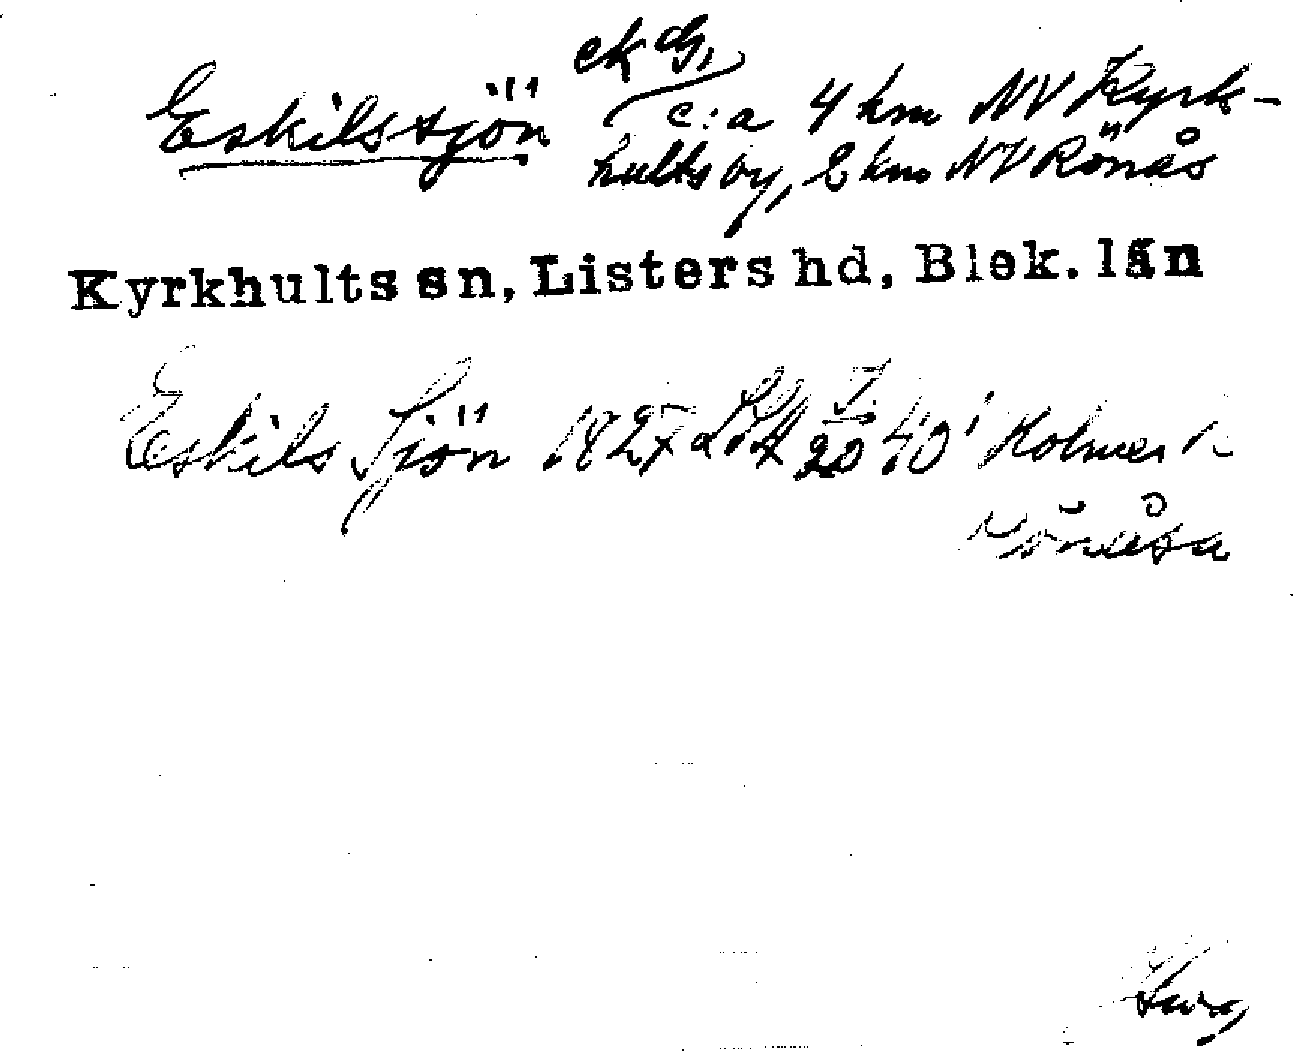 ek G,
Eskilssjön c:a 4 km NV Kyrk-
hults by, 2 km NV Rönås
Kyrkhults sn, Listers hd, Blek. län
Eskils Sjön 1827 40' Holmer i
Rönåsa